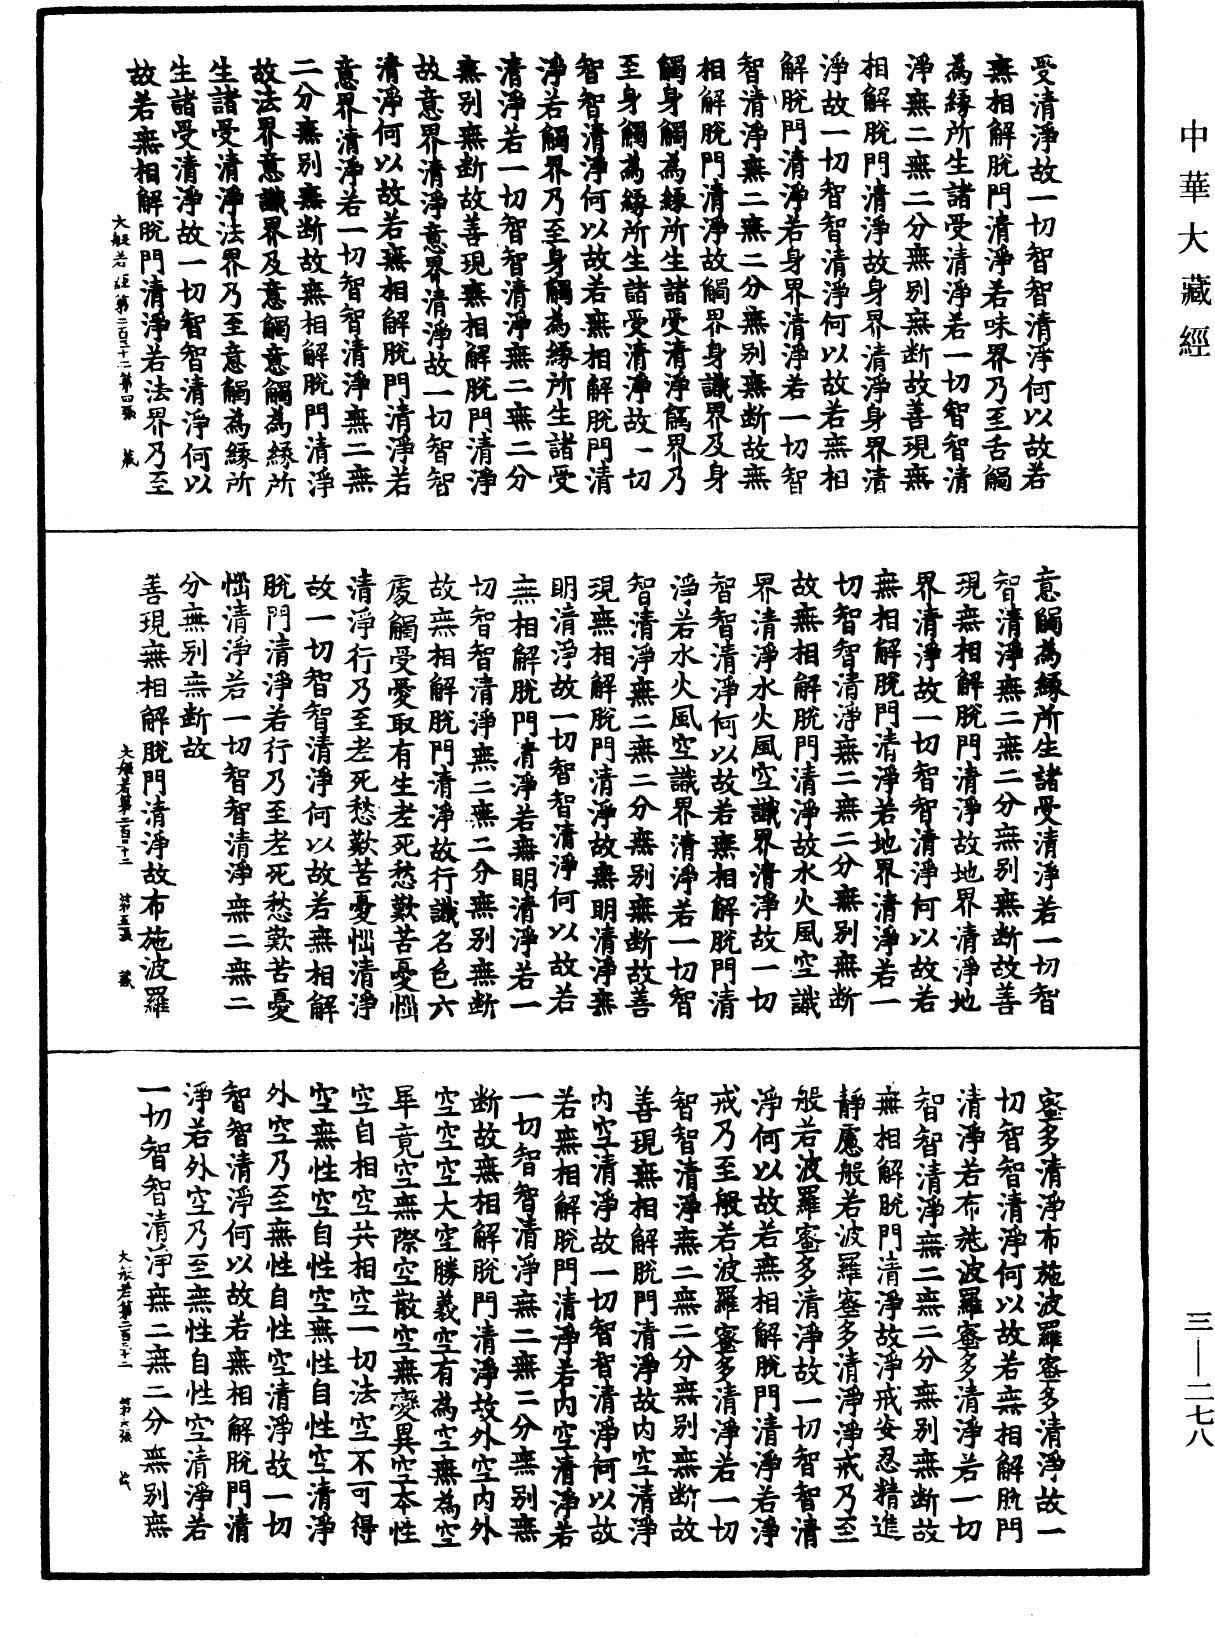 中華大藏經
受清淨故一切智智清淨何以故若
無相解脫門清淨若味界乃至舌觸
為緣所生諸受清淨若一切智智清
淨無二無二分無別無斷故善現無
相解脫門清淨故身界清淨身界清
淨故一切智智清淨何以故若無相
解脫門清淨若身界清淨若一切智
智清淨無二無二分無別無斷故無
相解脫門清淨故觸界身識界及身
觸身觸為緣所生諸受清淨觸界乃
至身觸為緣所生諸受清淨故一切
智智清淨何以故若無相解脫門清
淨若觸界乃至身觸為緣所生諸受
清淨若一切智智清淨無二無二分
無別無斷故善現無相解脫門清淨
故意界清淨意界清淨故一切智智
清淨何以故若無相解脫門清淨若
意界清淨若一切智智清淨無二無
二分無別無斷故無相解脫門清淨
故法界意識界及意觸意觸為緣所
生諸受清淨法界乃至意觸為緣所
生諸受清淨故一切智智清淨何以
故若無相解脫門清淨若法界乃至
大般若經第二百三十二 第四張 藏
意觸為緣所生諸受清淨若一切智
智清淨無二無二分無別無斷故善
現無相解脫門清淨故地界清淨地
界清淨故一切智智清淨何以故若
無相解脫門清淨若地界清淨若一
切智智清淨無二無二分無別無斷
故無相解脫門清淨故水火風空識
界清淨水火風空識界清淨故一切
智智清淨何以故若無相解脫門清
淨若水火風空識界清淨若一切智
智清淨無二無二分無別無斷故善
現無相解脫門清淨故無明清淨無
明清淨故一切智智清淨何以故若
無相解脫門清淨若無明清淨若一
切智智清淨無二無二分無別無斷
故無相解脫門清淨故行識名色六
處觸受愛取有生老死愁歎苦憂惱
清淨行乃至老死愁歎苦憂惱清淨
故一切智智清淨何以故若無相解
脫門清淨若行乃至老死愁歎苦憂
惱清淨若一切智智清淨無二無二
分無別無斷故
善現無相解脫門清淨故布施波羅
大般若第二百三十二 第五張 藏
蜜多清淨布施波羅蜜多清淨故一
切智智清淨何以故若無相解脫門
清淨若布施波羅蜜多清淨若一切
智智清淨無二無二分無別無斷故
無相解脫門清淨故淨戒安忍精進
靜慮般若波羅蜜多清淨淨戒乃至
般若波羅蜜多清淨故一切智智清
淨何以故若無相解脫門清淨若淨
戒乃至般若波羅蜜多清淨若一切
智智清淨無二無二分無別無斷故
善現無相解脫門清淨故內空清淨
內空清淨故一切智智清淨何以故
若無相解脫門清淨若內空清淨若
一切智智清淨無二無二分無別無
斷故無相解脫門清淨故外空內外
空空空大空勝義空有為空無為空
畢竟空無際空散空無變異空本性
空自相空共相空一切法空不可得
空無性空自性空無性自性空清淨
外空乃至無性自性空清淨故一切
智智清淨何以故若無相解脫門清
淨若外空乃至無性自性空清淨若
一切智智清淨無二無二分無別無
大般若第二百三十二 第六張 藏
三—二七八